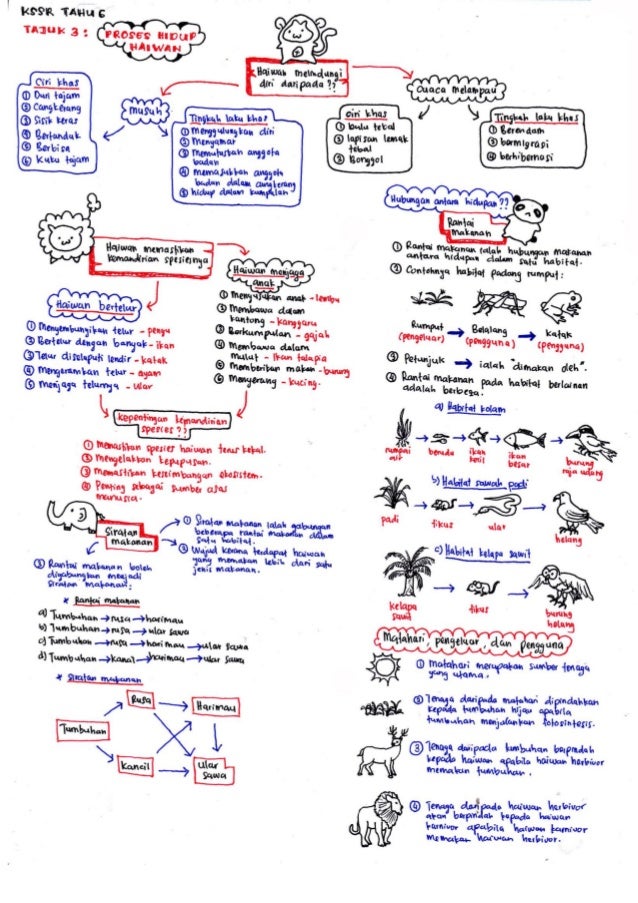 KSSR TAHUN 6
TAJUK 3 : PROSES HIDUP
HAIWAN
Haiwan melindungi
diri daripada ??
Ciri khas
① Duri tajam
② Cangkerang
③ Sisik keras
④ Bertanduk
⑤ Berbisa
⑥ Kuku tajam
musuh
Tingkah laku khas
① Menggulungkan diri
② Menyamar
③ Memutuskan anggota
badan
④ Memasukkan anggota
badan dalam cangkerang
⑤ hidup dalam kumpulan
Cuaca melampau
Ciri khas
① bulu tebal
② lapisan lemak
tebal
③ Bonggol
Tingkah laku khas
① Berendam
② bermigrasi
④ berhibernasi
Haiwan memastikan
kemandirian spesiesnya
Haiwan bertelur
① Menyembunyikan telur - penyu
② Bertelur dengan banyak - ikan
③ Telur diselaputi lendir - katak
④ Mengeramkan telur - ayam
⑤ Menjaga telurnya - ular
Haiwan menjaga
anak
① Menyusukan anak - lembu
② Membawa dalam
kantung - kangaru
③ Berkumpulan - gajah
④ Membawa dalam
mulut - Ikan talapia
⑤ Memberikan makan - burung
⑥ Menyerang - kucing.
kepentingan kemandirian
spesies ??
① Memastikan spesies haiwan terus kekal.
② Mengelakkan kepupusan.
③ Memastikan keseimbangan ekosistem.
④ Penting sebagai sumber asas
manusia.
Siratan
makanan
① Siratan makanan ialah gabungan
beberapa rantai makanan dalam
satu habitat.
② Wujud kerana terdapat haiwan
yang memakan lebih dari satu
jenis makanan.
③ Rantai makanan boleh
digabungkan menjadi
siratan makanan:
* Rantai makanan
a) Tumbuhan → rusa → harimau
b) Tumbuhan → rusa → ular sawa
c) Tumbuhan → rusa → harimau → ular sawa
d) Tumbuhan → kancil → harimau → ular sawa
* Siratan makanan
Rusa
Harimau
Tumbuhan
Kancil
Ular
sawa
Hubungan antara hidupan ??
Rantai
makanan
① Rantai makanan ialah hubungan makanan
antara hidupan dalam satu habitat.
② Contohnya habitat padang rumput:
Rumput → Belalang → katak
(pengeluar) (pengguna) (pengguna)
③ Petunjuk → ialah "dimakan oleh".
④ Rantai makanan pada habitat berlainan
adalah berbeza.
a) Habitat kolam
rumpai
air
berudu
ikan
kecil
ikan
besar
burung
raja udang
b) Habitat sawah padi
padi
tikus
ular
helang
c) Habitat kelapa sawit
kelapa
sawit
tikus
burung
helang
Matahari, pengeluar, dan pengguna
① Matahari merupakan sumber tenaga
yang utama.
② Tenaga daripada matahari dipindahkan
kepada tumbuhan hijau apabila
tumbuhan menjalankan fotosintesis.
③ Tenaga daripada tumbuhan berpindah
kepada haiwan apabila haiwan herbivor
memakan tumbuhan.
④ Tenaga daripada haiwan herbivor
akan berpindah kepada haiwan
karnivor apabila haiwan karnivor
memakan haiwan herbivor.